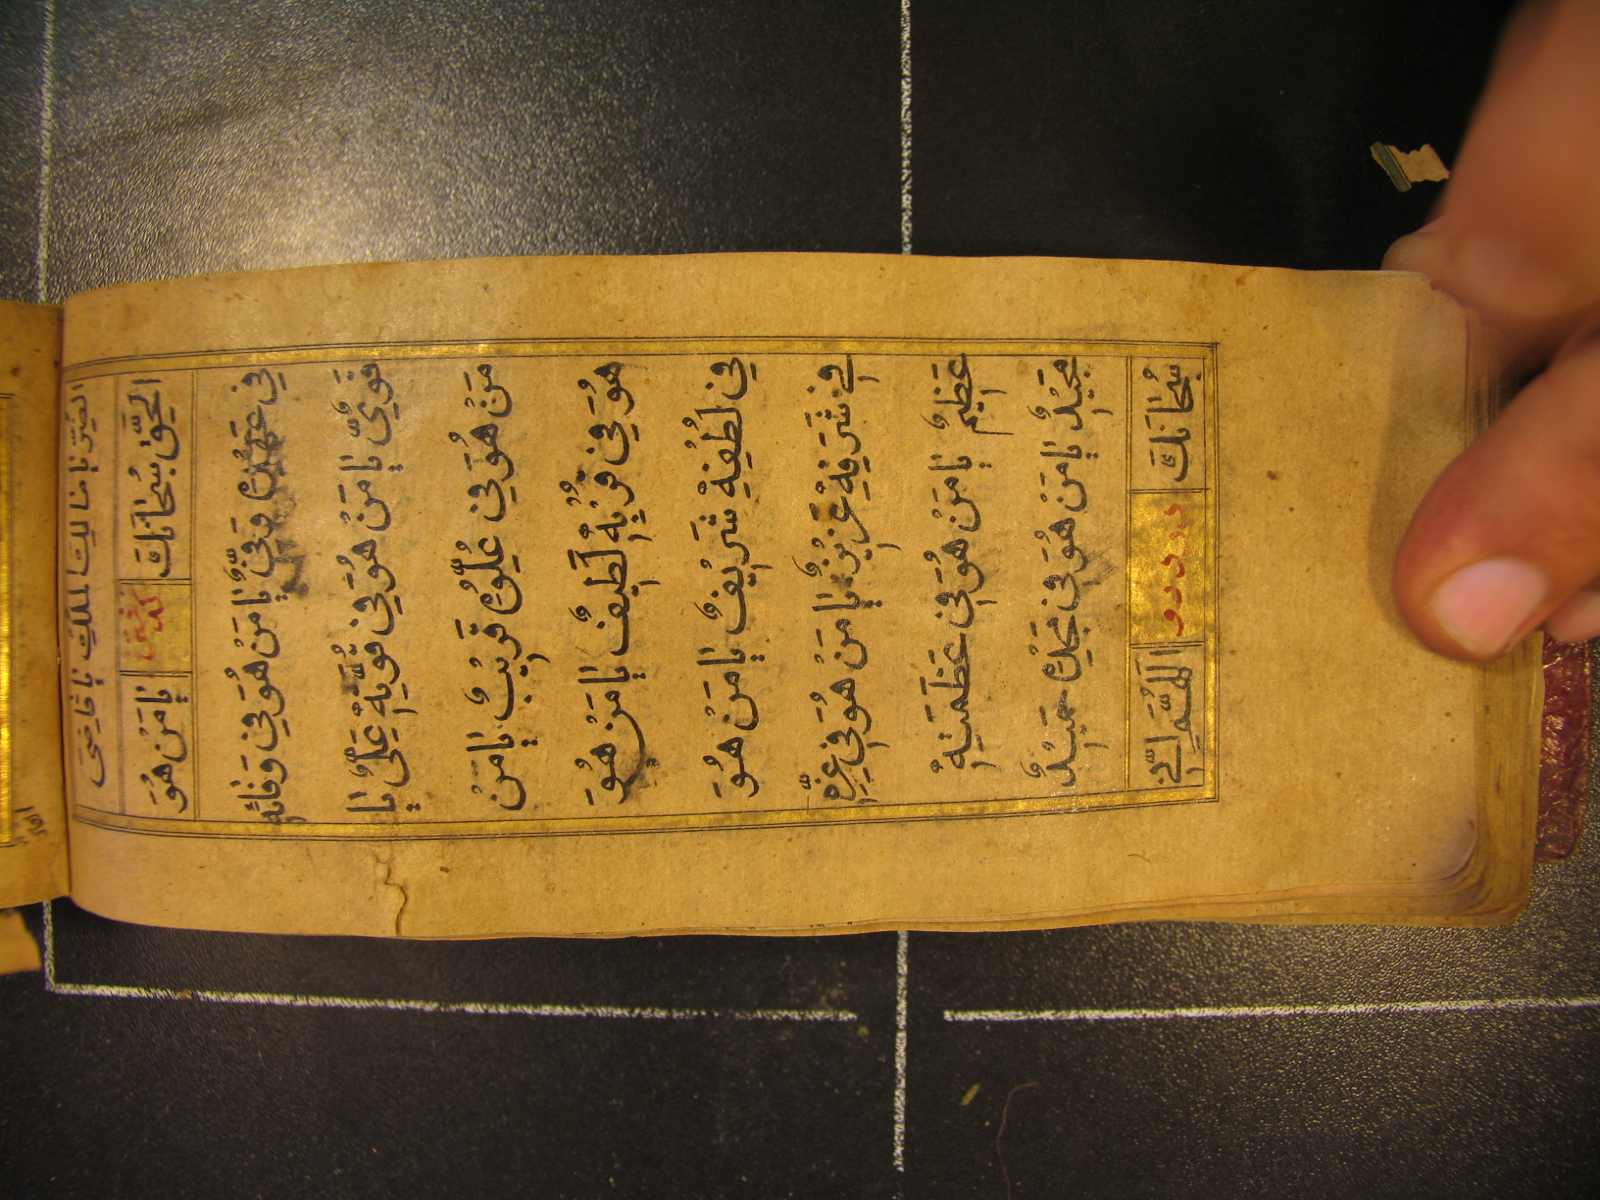 الضُّرِّ يا مالك الملك يا قاضي
الحق سبحانك يا من هو
في عهده وفيٌّ يا من هو في وفائه
قويٌّ يا من هو في قوته عليٌّ يا
من هو في علوه قريبٌ يا من
هو في قربه لطيفٌ يا من هو
في لطفه شريفٌ يا من هو
في شرفه عزيزٌ يا من هو في عزه
عظيمٌ يا من هو في عظمته
مجيدٌ يا من هو في مجده حميدٌ
سبحانك اللهم اني